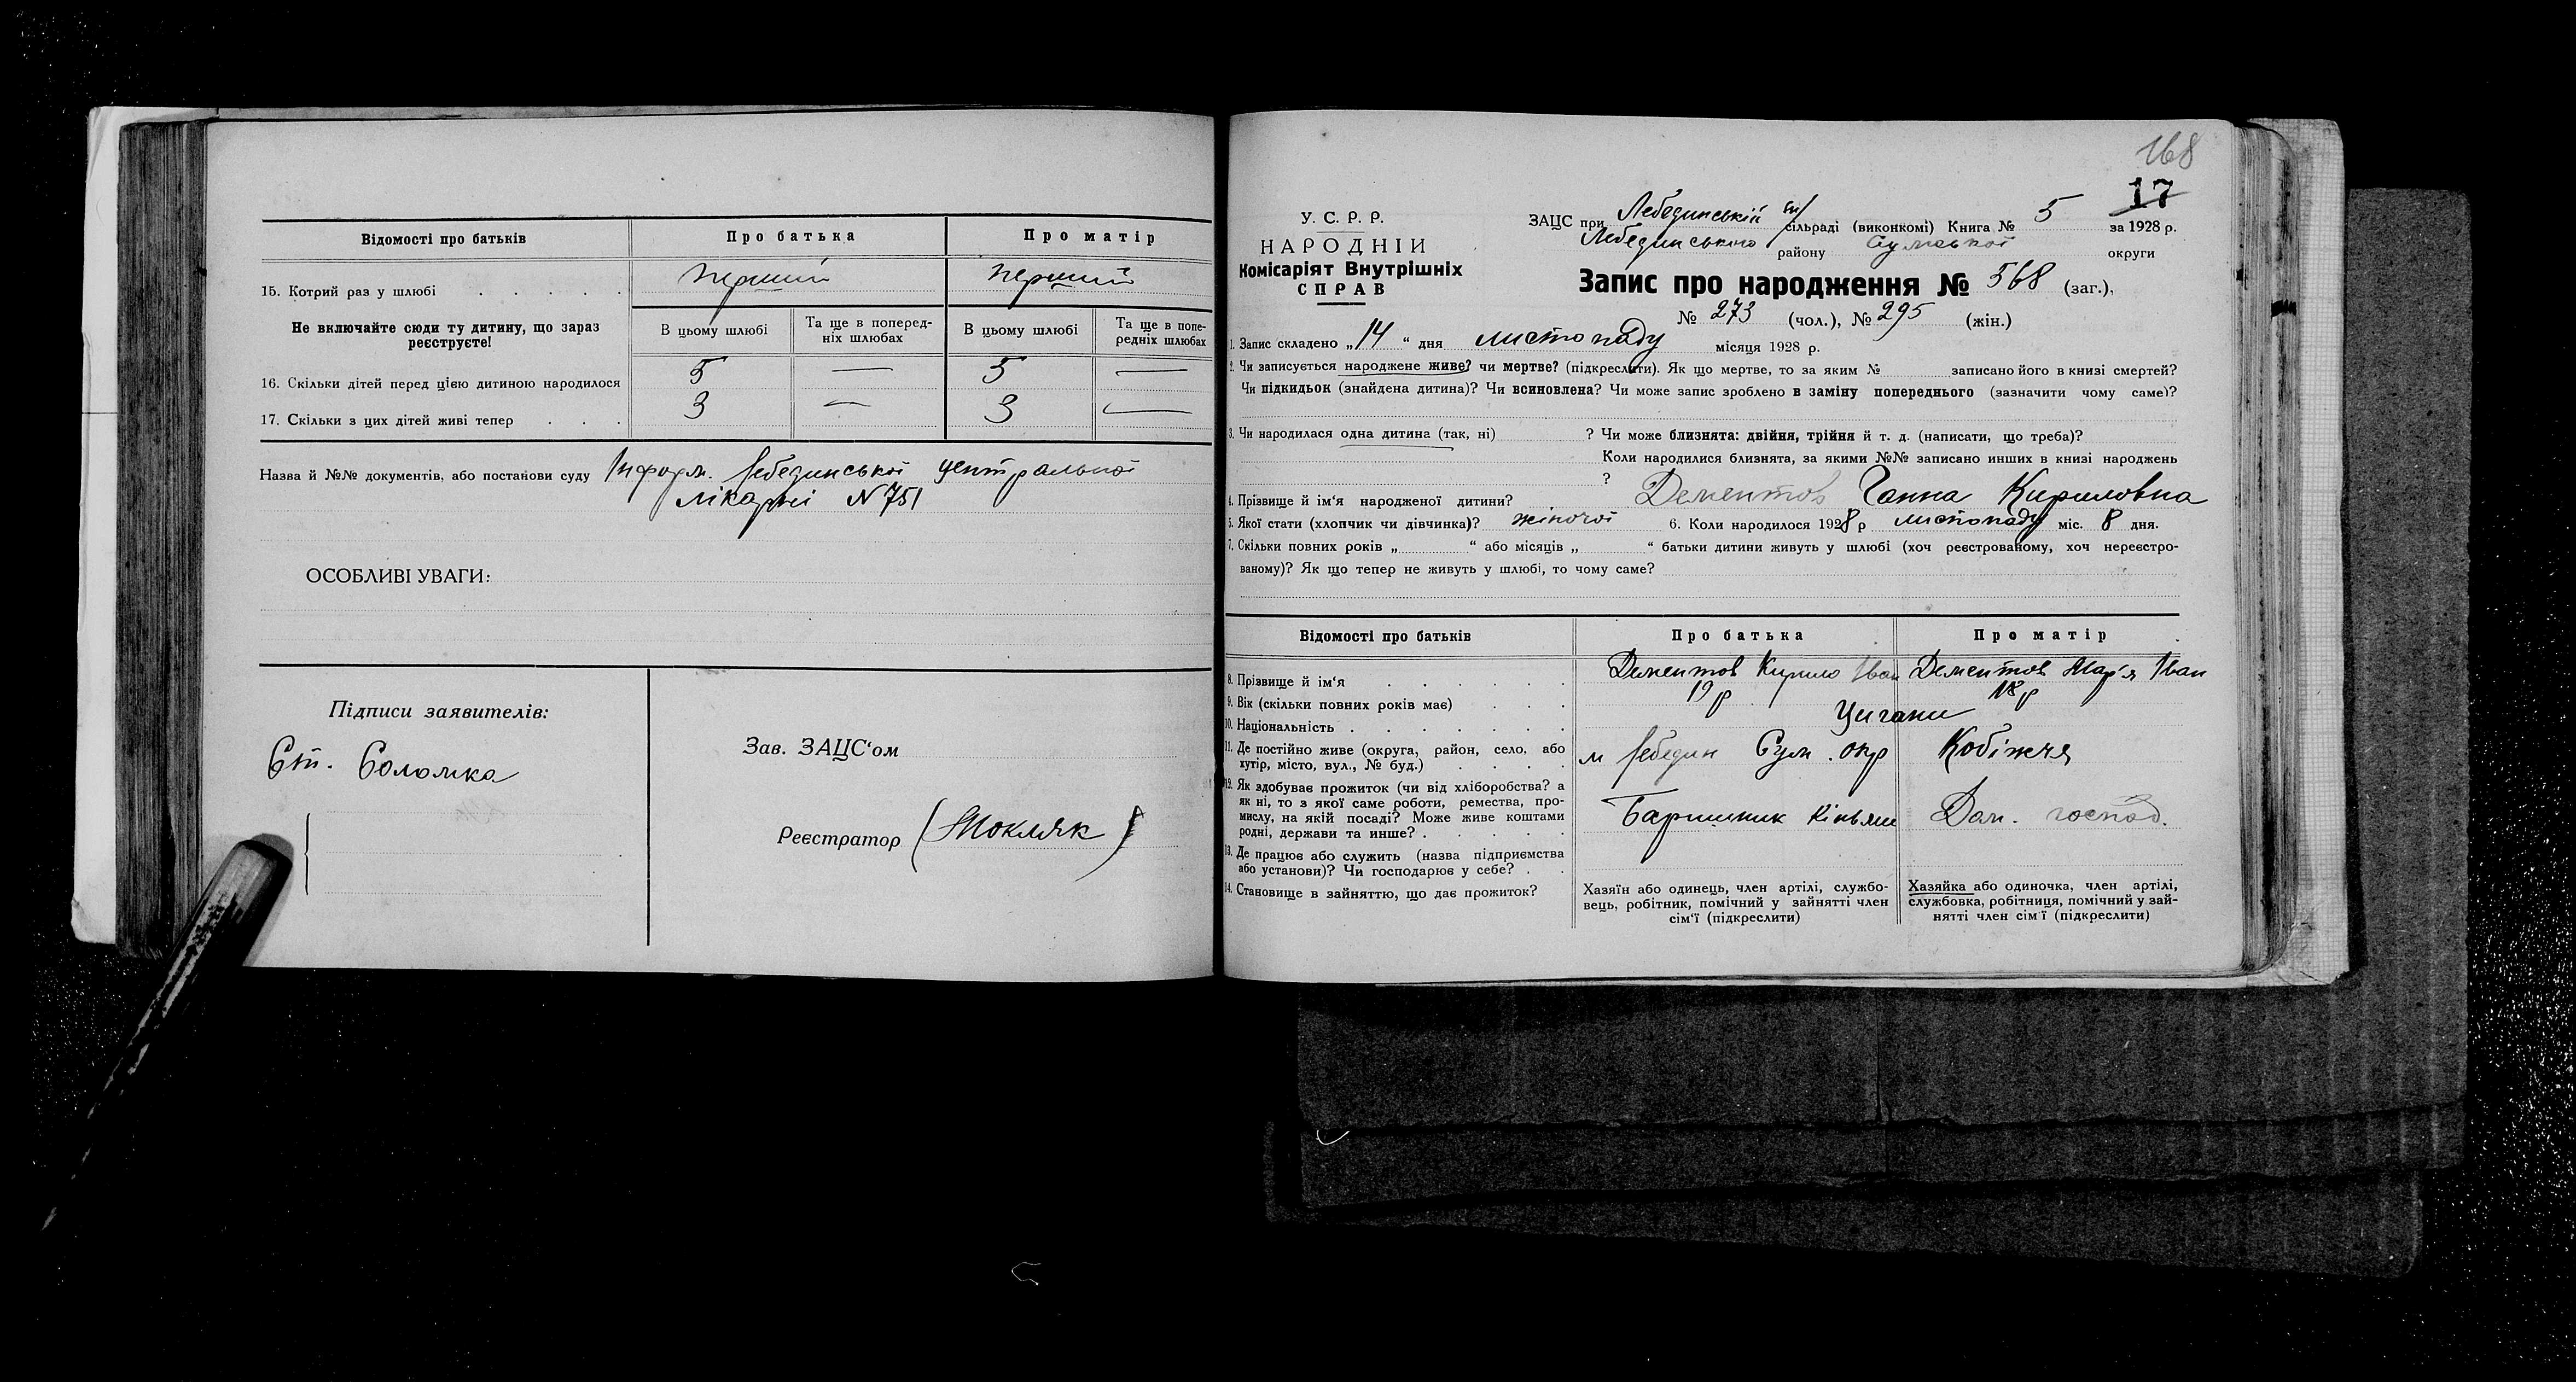 Відомості про батьків
Про батька
Про матір
15. Котрий раз у шлюбі . . . . .
перший
перший
Не включайте сюди ту дитину, що зараз
реєструєте!
В цьому шлюбі
Та ще в поперед-
ніх шлюбах
В цьому шлюбі
Та ще в попе-
редніх шлюбах
16. Скільки дітей перед цією дитиною народилося
5 — 5 —
17. Скільки з цих дітей живі тепер . . .
3 — 3 —
Назва й №№ документів, або постанови суду Інформ. Лебединської центральної
лікарні N 751
ОСОБЛИВІ УВАГИ:
Підписи заявителів:
Ст. Соломка
Зав. ЗАЦС'ом
Реєстратор (Мокляк)
168
17
У. С. Р. Р.
НАРОДНІЙ
Комісаріят Внутрішніх
СПРАВ
ЗАЦС при Лебединській сільраді (виконкомі) Книга № 5 за 1928 р.
Лебединського району Сумської округи
Запис про народження № 568 (заг.),
№ 273 (чол.), № 295 (жін.)
1. Запис складено „14“ дня листопаду місяця 1928 р.
2. Чи записується народжене живе? чи мертве? (підкреслити). Як що мертве, то за яким № записано його в книзі смертей?
Чи підкидьок (знайдена дитина)? Чи всиновлена? Чи може запис зроблено в заміну попереднього (зазначити чому саме)?
3. Чи народилася одна дитина (так, ні) ? Чи може близнята: двійня, трійня й т. д. (написати, що треба)?
Коли народилися близнята, за якими №№ записано инших в книзі народжень
?
4. Прізвище й ім'я народженої дитини? Дементов Ганна Кириловна
5. Якої стати (хлопчик чи дівчинка)? жіночої 6. Коли народилося 1928 р листопаду міс. 8 дня.
7. Скільки повних років „ “ або місяців „ “ батьки дитини живуть у шлюбі (хоч реєстрованому, хоч нереєстро-
ваному)? Як що тепер не живуть у шлюбі, то чому саме?
Відомості про батьків
Про батька
Про матір
8. Прізвище й ім'я . . . . . .
Дементов Кирило Іван
Дементов Мар'я Іван
9. Вік (скільки повних років має) . . .
19 р
18 р
10. Національність . . . . . . .
Цигани
11. Де постійно живе (округа, район, село, або
хутір, місто, вул., № буд.) . . . .
м Лебедин Сум. окр
Кобіжчя
12. Як здобуває прожиток (чи від хліборобства? а
як ні, то з якої саме роботи, ремества, про-
мислу, на якій посаді? Може живе коштами
родні, держави та инше? . . . . .
Баришник кіньми
Дом. господ.
13. Де працює або служить (назва підприємства
або установи)? Чи господарює у себе? . .
14. Становище в зайняттю, що дає прожиток?
Хазяїн або одинець, член артілі, службо-
вець, робітник, помічний у зайнятті член
сім'ї (підкреслити)
Хазяйка або одиночка, член артілі,
службовка, робітниця, помічний у зай-
нятті член сім'ї (підкреслити)